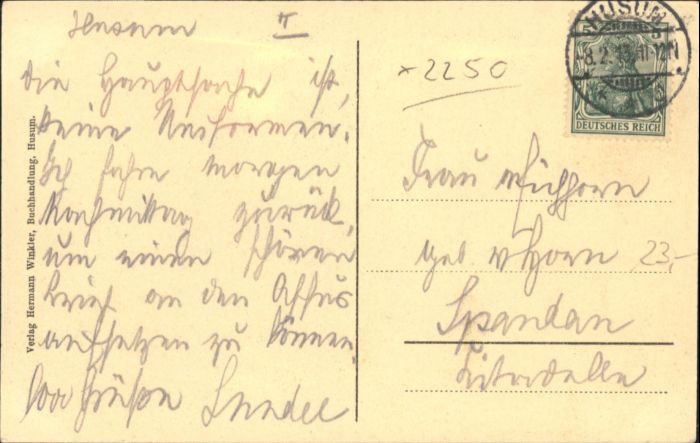 Husum II
die Hauptsache ist,
keine Uniformen.
Ich fahre morgen
Nachmittag zurück,
um einen schönen
Brief an den
aufsetzen zu können.
Grüße
Verlag Hermann Winkler, Buchhandlung, Husum.
*2250
HUSUM
8.2.13 11-12
DEUTSCHES REICH
Frau
geb. v Horn 23,-
Spandau
Zitadelle